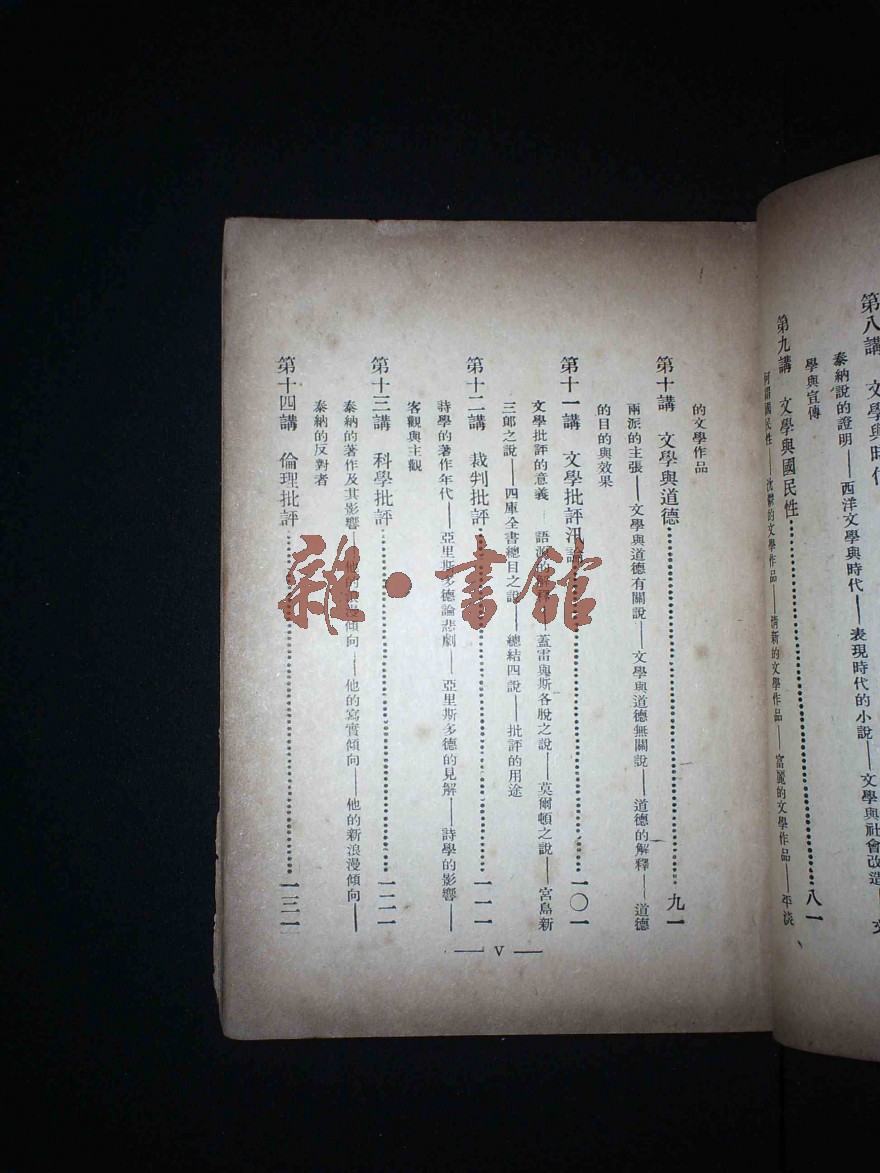 第八講 文學與時代
泰納說的證明——西洋文學與時代——表現時代的小說——文學與社會改造——文
學與宣傳
第九講 文學與國民性…………八一
何謂國民性——沈鬱的文學作品——清新的文學作品——富麗的文學作品——平淡
的文學作品
第十講 文學與道德…………九一
兩派的主張——文學與道德有關說——文學與道德無關說——道德的解釋——道德
的目的與效果
第十一講 文學批評汎論…………一〇一
文學批評的意義——語源的解釋——蓋雷與斯各脫之說——莫爾頓之說——宮島新
三郎之說——四庫全書總目之說——總結四說——批評的用途
第十二講 裁判批評…………一一一
詩學的著作年代——亞里斯多德論悲劇——亞里斯多德的見解——詩學的影響——
客觀與主觀
第十三講 科學批評…………一二一
泰納的著作及其影響——他的浪漫傾向——他的寫實傾向——他的新浪漫傾向——
泰納的反對者
第十四講 倫理批評…………一三一
— V —
雜·書館